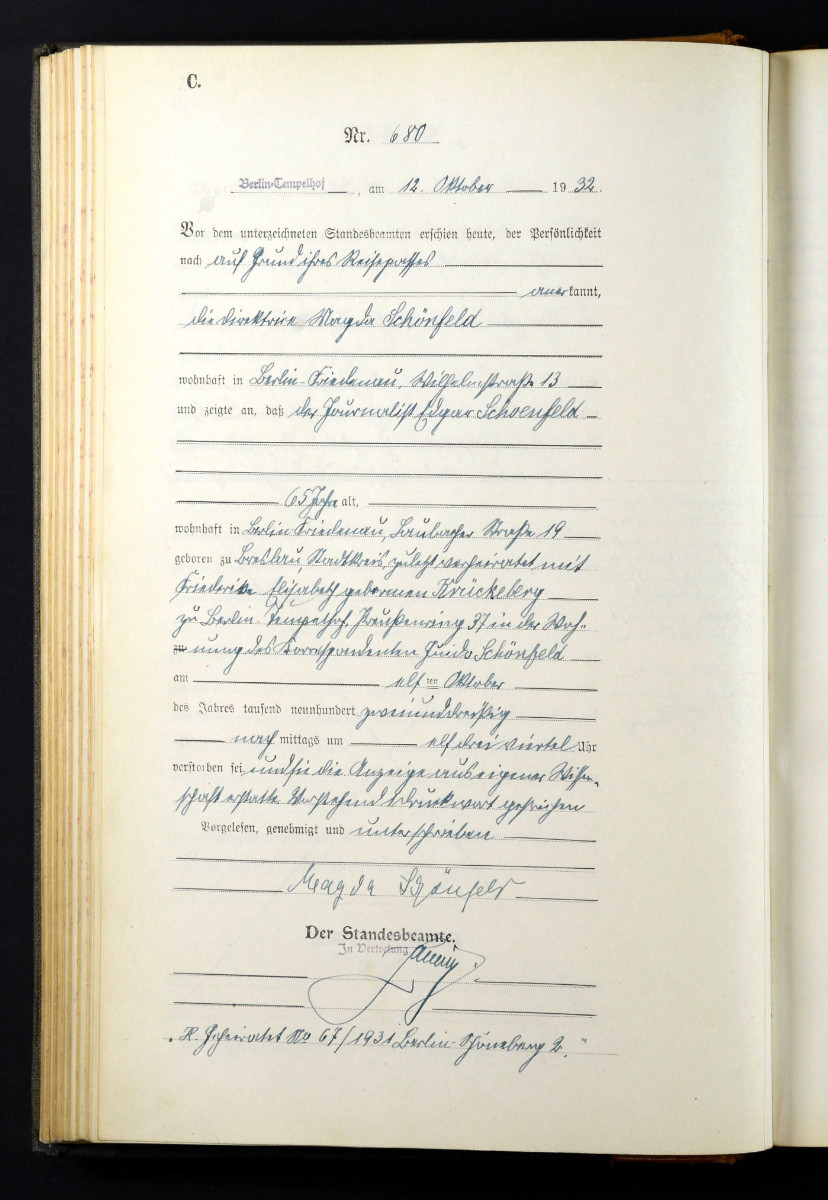 C.
Nr. 680
Berlin-Tempelhof, am 12. Oktober 1932.
Vor dem unterzeichneten Standesbeamten erschien heute, der Persönlichkeit
nach auf Grund ihres Reisepasses
anerkannt,
die Direktrice Magda Schönfeld
wohnhaft in Berlin-Friedenau, Wilhelmstraße 13
und zeigte an, daß der Journalist Edgar Schoenfeld
65 Jahre alt,
wohnhaft in Berlin Friedenau, Laubacher Straße 19
geboren zu Breslau, Stadtkreis, zuletzt verheiratet mit
Friederike Elisabeth geborenen Krückeberg
zu Berlin-Tempelhof, Preußenring 37 in der Woh-
zu nung des Korrespondenten Guido Schönfeld
am elften Oktober
des Jahres tausend neunhundert zweiunddreißig
nachmittags um elf drei viertel Uhr
verstorben sei, und sie die Anzeige aus eigener Wissen-
schaft erstatte. Vorstehend 1 Druckwort gestrichen
Vorgelesen, genehmigt und unterschrieben
Magda Schönfeld
Der Standesbeamte.
In Vertretung
Geheiratet No 67/1931 Berlin-Schöneberg 2."